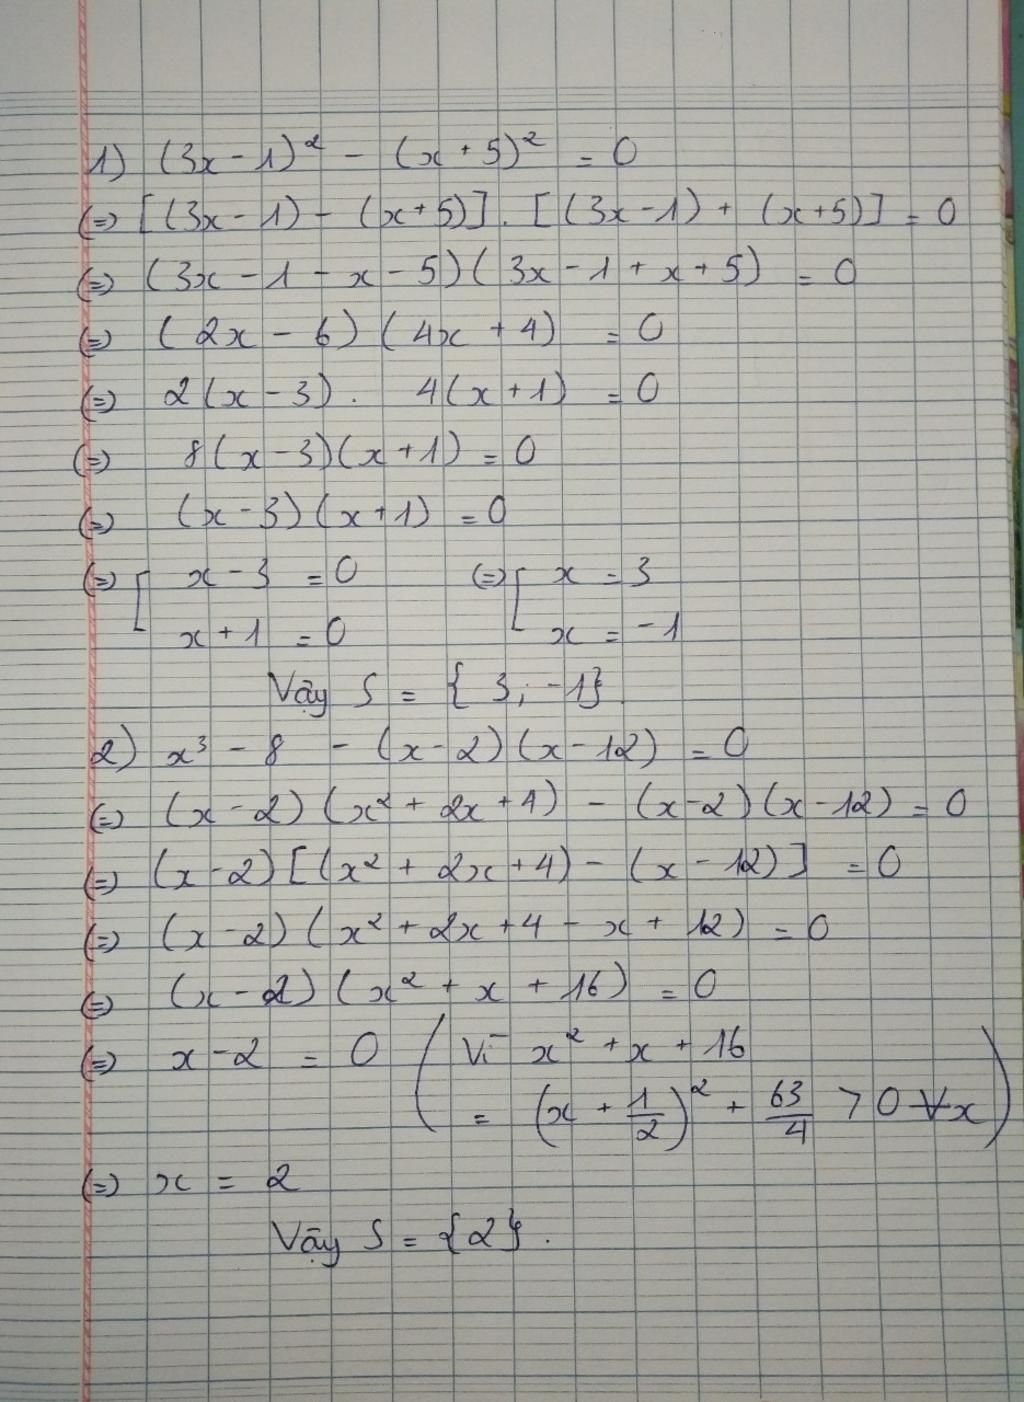 1) (3x - 1)² - (x + 5)² = 0
(=) [(3x - 1) - (x + 5)] . [(3x - 1) + (x + 5)] = 0
(=) (3x - 1 - x - 5)(3x - 1 + x + 5) = 0
(=) (2x - 6)(4x + 4) = 0
(=) 2(x - 3) . 4(x + 1) = 0
(=) 8(x - 3)(x + 1) = 0
(=) (x - 3)(x + 1) = 0
(=) [ x - 3 = 0 (=) [ x = 3
x + 1 = 0 x = -1
Vậy S = { 3; -1}
2) x³ - 8 - (x - 2)(x - 12) = 0
(=) (x - 2)(x² + 2x + 4) - (x - 2)(x - 12) = 0
(=) (x - 2)[(x² + 2x + 4) - (x - 12)] = 0
(=) (x - 2)(x² + 2x + 4 - x + 12) = 0
(=) (x - 2)(x² + x + 16) = 0
(=) x - 2 = 0 ( Vì x² + x + 16
= (x + 1/2)² + 63/4 > 0 ∀x )
(=) x = 2
Vậy S = {2}.